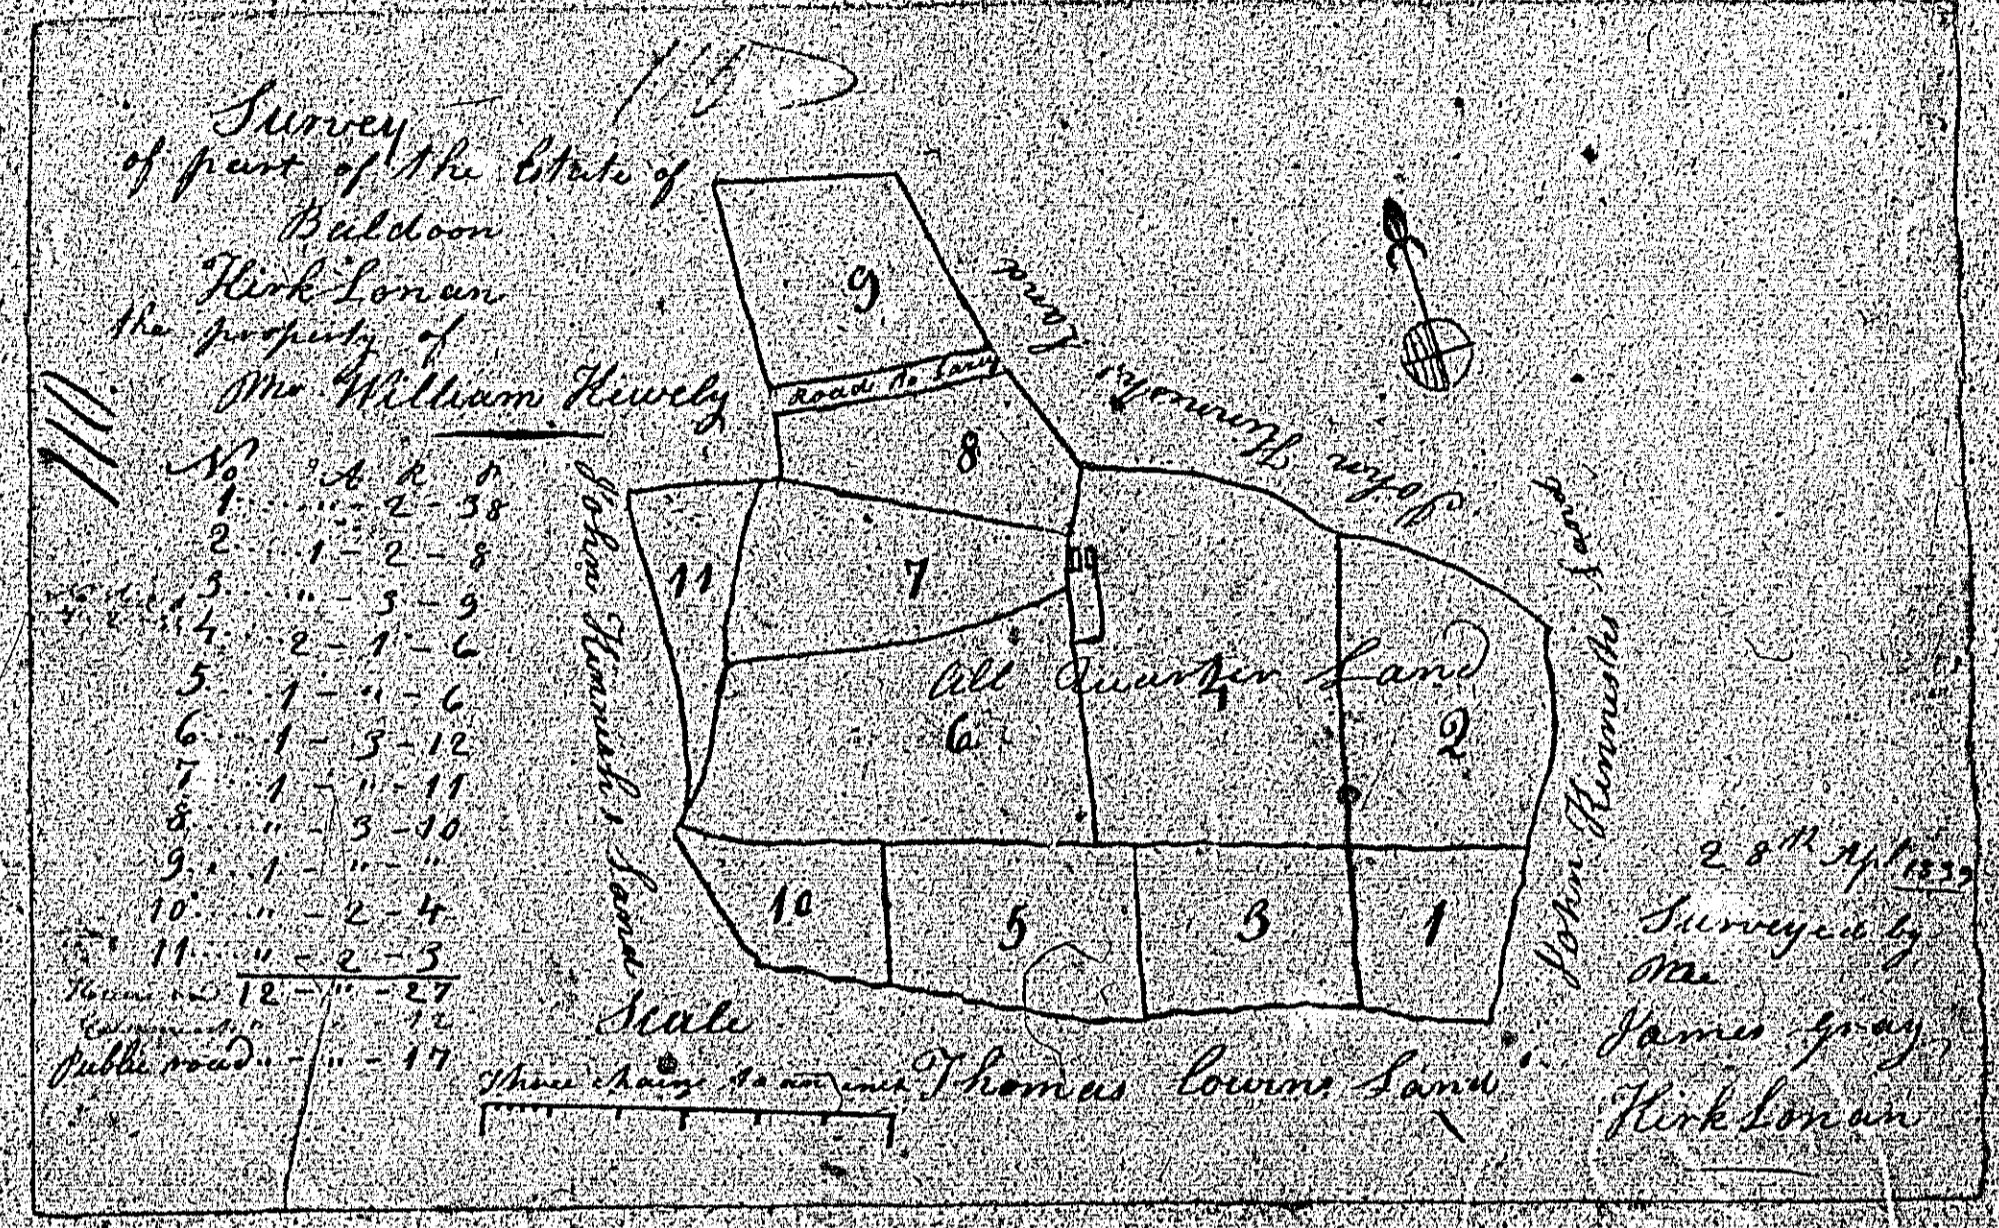 Survey
of part of the Estate of
Baldoon
Kirk Lonan
the property of
Mr William Kewely
No A R P
1 ..... " - 2 - 38
2 .... 1 - 2 - 8
3 ..... " - 3 - 9
4 .... 2 - 1 - 6
5 .... 1 - " - 6
6 .... 1 - 3 - 12
7 .... 1 - " - 11
8 ..... " - 3 - 10
9 .... 1 - " - "
10 .... " - 2 - 4
11 .... " - 2 - 3
12 - " - 27
12
Public road " - " - 17
9
Road to Laxy
8
11
7
6
4
2
10
5
3
1
All Quarter Land
John Land
John Kinnishs Land
John Kinnishs Land
Scale
Three chains to an inch
Thomas Cowins Land
28th Apl
Surveyed by
Me
James Gray
Kirk Lonan